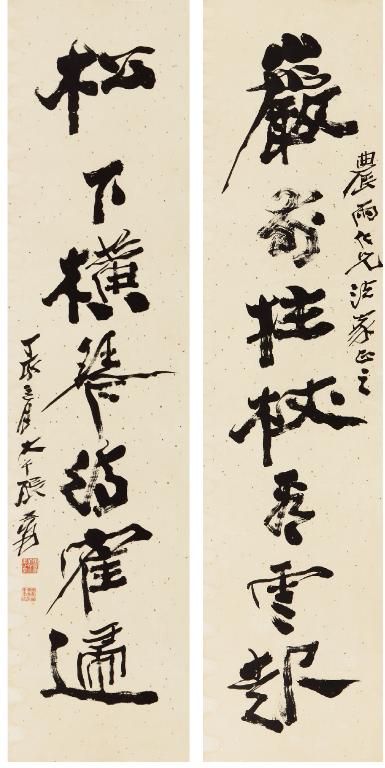 巖前拄杖看雲起
農雨仁兄法家正之
松下橫琴待寉歸
丁亥三月大千張爰